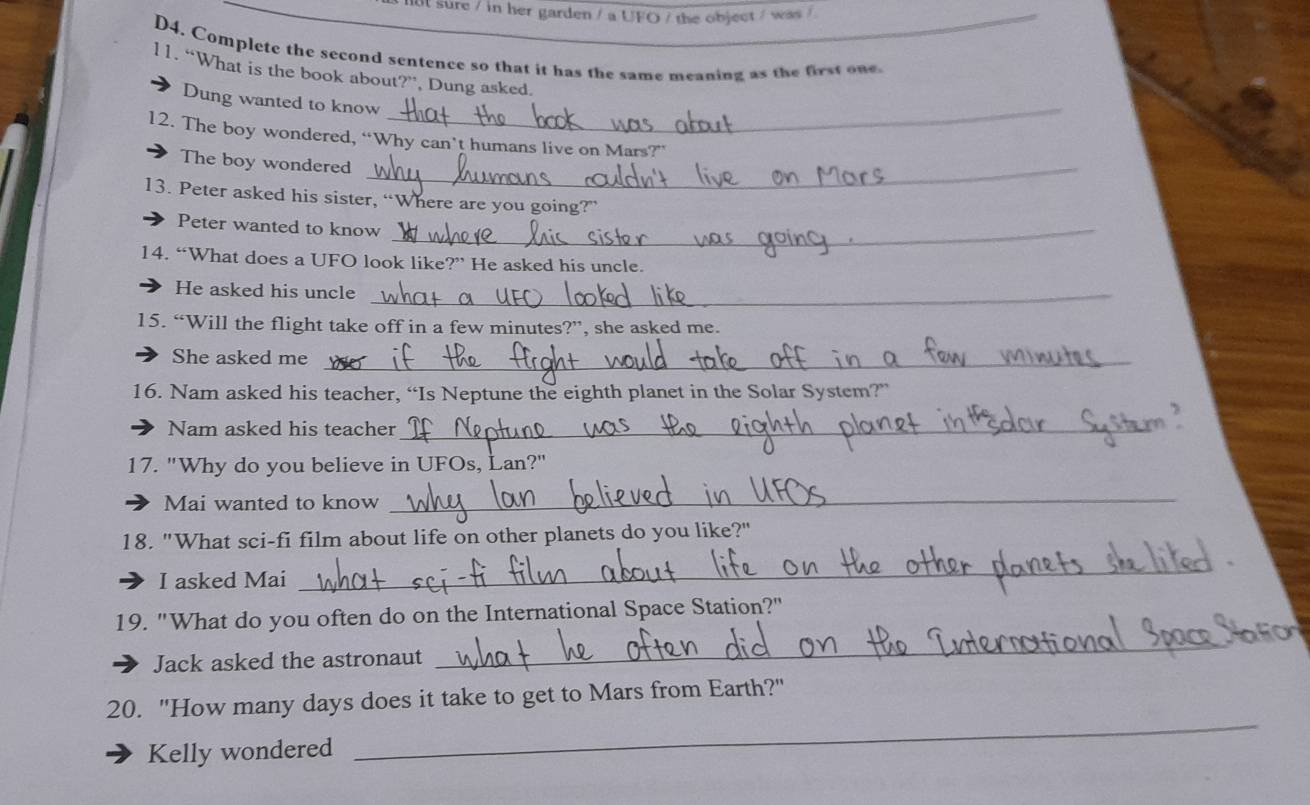 not sure / in her garden / a UFO / the object / was /.
D4. Complete the second sentence so that it has the same meaning as the first one.
11. “What is the book about?”, Dung asked.
➔ Dung wanted to know that the book was about
12. The boy wondered, “Why can’t humans live on Mars?”
➔ The boy wondered why humans couldn't live on Mars
13. Peter asked his sister, “Where are you going?”
➔ Peter wanted to know where his sister was going.
14. “What does a UFO look like?” He asked his uncle.
➔ He asked his uncle what a UFO looked like.
15. “Will the flight take off in a few minutes?”, she asked me.
➔ She asked me if the flight would take off in a few minutes
16. Nam asked his teacher, “Is Neptune the eighth planet in the Solar System?”
➔ Nam asked his teacher If Neptune was the eighth planet in the solar System?
17. "Why do you believe in UFOs, Lan?"
➔ Mai wanted to know why lan believed in UFOs
18. "What sci-fi film about life on other planets do you like?"
➔ I asked Mai what sci-fi film about life on the other planets she liked.
19. "What do you often do on the International Space Station?"
➔ Jack asked the astronaut what he often did on the International Space Station
20. "How many days does it take to get to Mars from Earth?"
➔ Kelly wondered